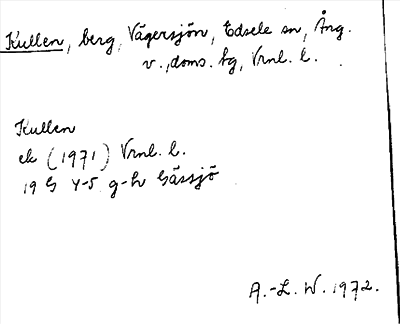 Kullen, berg, Vägersjön, Edsele sn, Ång.
v., doms. hg, Vrnl. l.
Kullen
ek (1971) Vrnl. l.
19 G 4-5 g-h Gåssjö
A.-L. W. 1972.